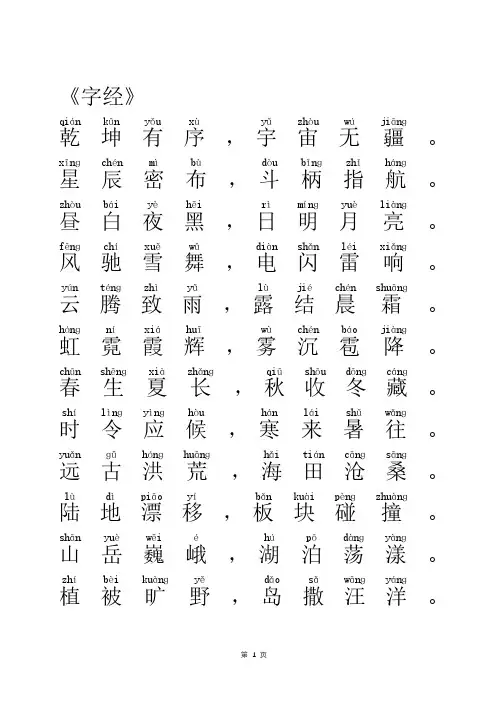 《字经》
qián kūn yǒu xù yǔ zhòu wú jiāng
乾坤有序，宇宙无疆。
xīng chén mì bù dǒu bǐng zhǐ háng
星辰密布，斗柄指航。
zhòu bái yè hēi rì míng yuè liàng
昼白夜黑，日明月亮。
fēng chí xuě wǔ diàn shǎn léi xiǎng
风驰雪舞，电闪雷响。
yún téng zhì yǔ lù jié chén shuāng
云腾致雨，露结晨霜。
hóng ní xiá huī wù chén báo jiàng
虹霓霞辉，雾沉雹降。
chūn shēng xià zhǎng qiū shōu dōng cáng
春生夏长，秋收冬藏。
shí lìng yìng hòu hán lái shǔ wǎng
时令应候，寒来暑往。
yuǎn gǔ hóng huāng hǎi tián cāng sāng
远古洪荒，海田沧桑。
lù dì piāo yí bǎn kuài pèng zhuàng
陆地漂移，板块碰撞。
shān yuè wēi é hú pō dàng yàng
山岳巍峨，湖泊荡漾。
zhí bèi kuàng yě dǎo sǎ wāng yáng
植被旷野，岛撒汪洋。
第 1 页